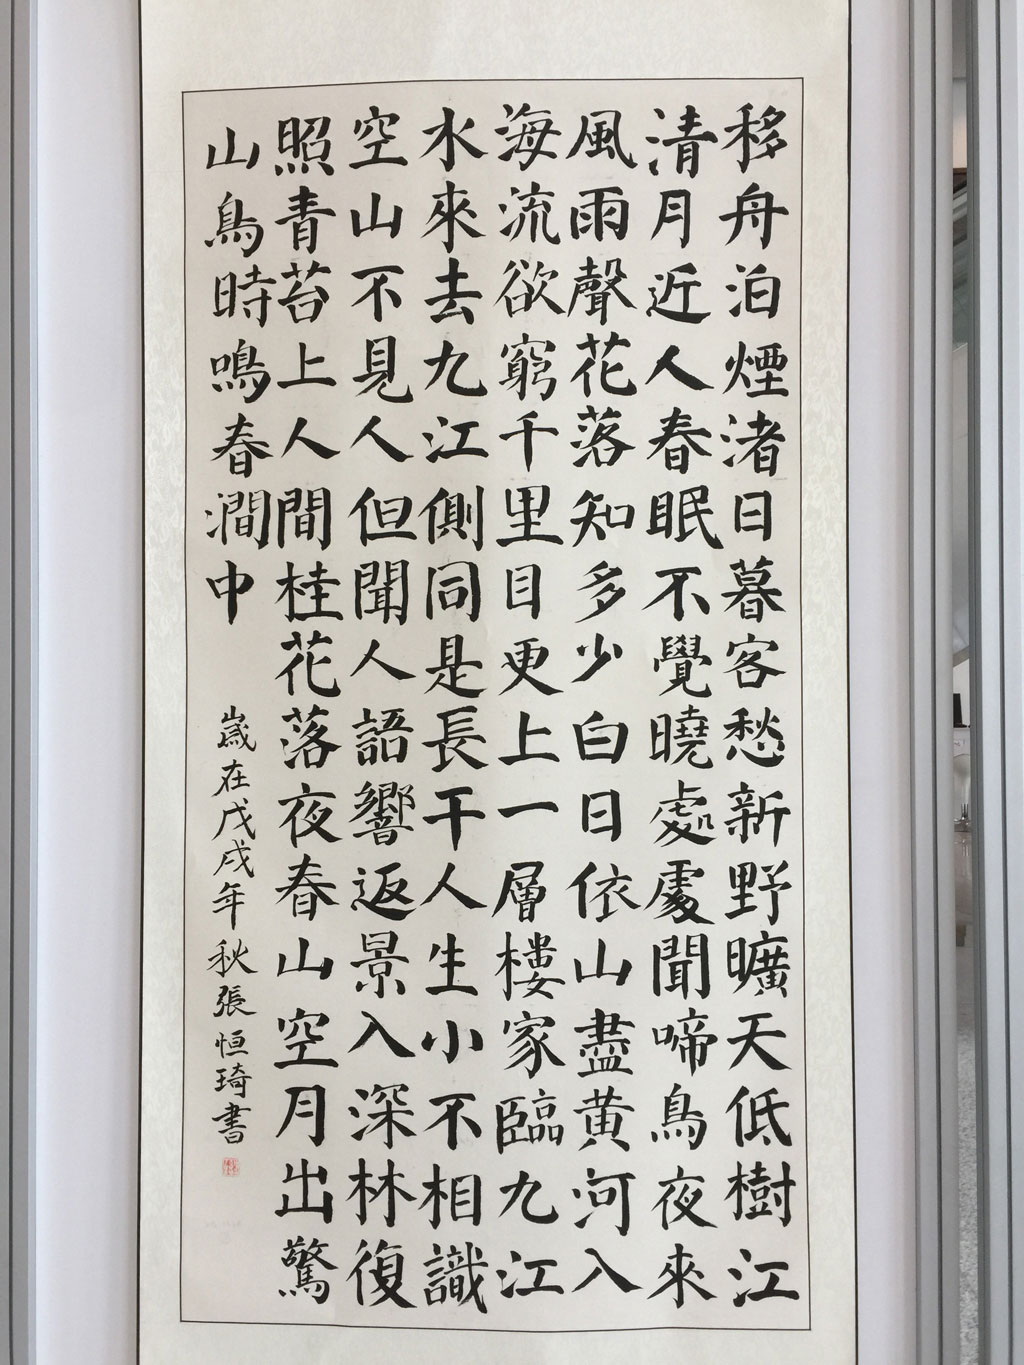 移舟泊煙渚日暮客愁新野曠天低樹江
清月近人春眠不覺曉處處聞啼鳥夜來
風雨聲花落知多少白日依山盡黄河入
海流欲窮千里目更上一層樓家臨九江
水來去九江側同是長干人生小不相識
空山不見人但聞人語響返景入深林復
照青苔上人間桂花落夜春山空月出驚
山鳥時鳴春澗中
歲在戊戌年秋張恒琦書